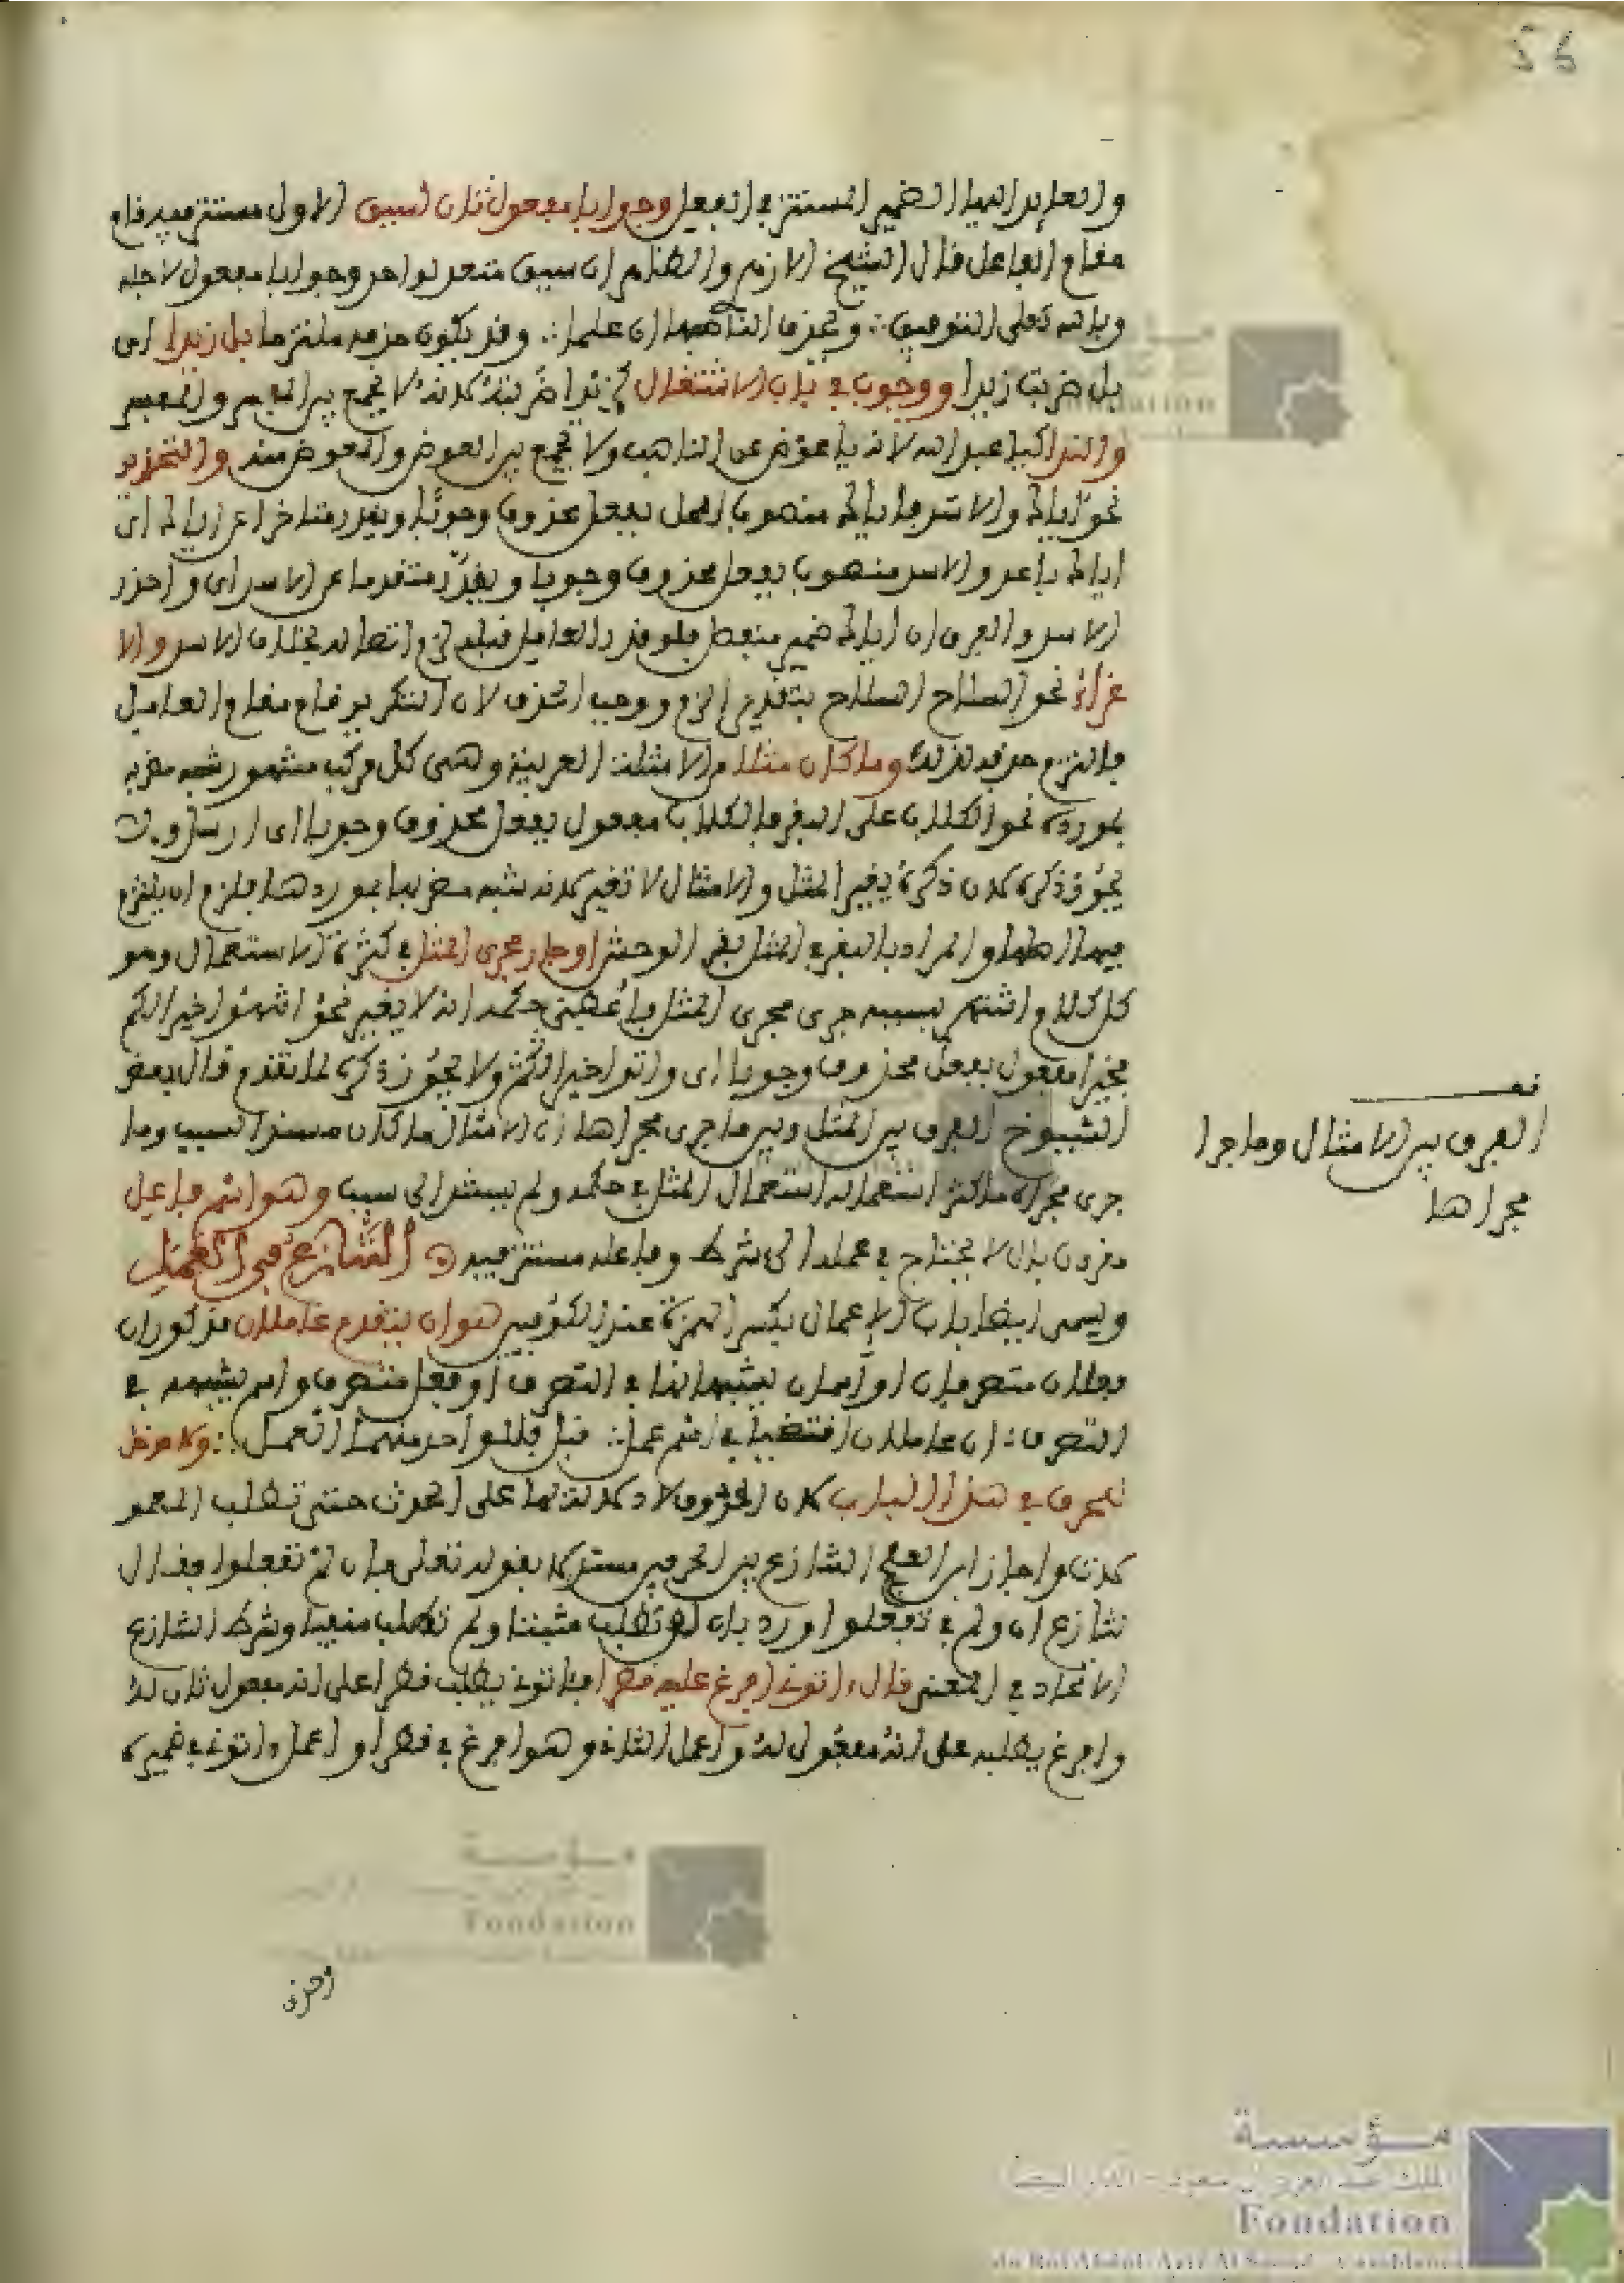 56
والعايد اليها الضمير المستتر في الفعل وجوابا مفعول ثان لسيق الاول مستتر فيه قام
مقام الفاعل قال الشيخ الازهر والظاهر ان سيق متعد لواحد وجوابا مفعول لاجله
وبالله تعلى التوفيق ∴ ويحذف الناصبها ان علما ∴ وقد يكون حذفه ملتزما بل زيدا اي
بل ضربت زيدا ووجوبا في باب الاشتغال كزيدا ضربته لانه لا يجمع بين المفسر والمفسر
والندا كيا عبد الله لان يا عوض عن الناصب ولا يجمع بين العوض والمعوض منه والتحذير
نحو اياك والاسد فاياك منصوب المحل بفعل محذوف وجوبا ويقدر متاخرا عن اياك اي
اياك باعد والاسد منصوب بفعل محذوف وجوبا ويقدر متقدما عن الاسد اي واحذر
الاسد والفرق ان اياك ضمير منفصل فلو قدر العامل قبله لزم اتصاله بخلاف الاسد والا
غراء نحو السلاح السلاح بتقدير الزم ووجب الحذف لان التكرير قام مقام العامل
فالتزم حذفه لذلك وما كان مثلا من الامثلت العربية وهي كل مركب مشهور شبه مضربه
بمورده نحو الكلاب على البقر فالكلاب مفعول بفعل محذوف وجوبا اي ارسل و
يجوز ذكره لان ذكره يغير المثل والامثال لا تغير لانه شبه مضربها بموردها فيلزم ان يلتزم
فيها اصلها والمراد بالبقر في المثل بقر الوحش او جار مجرى المثل في كثرة الاستعمال وهو
كل كلام اشتهر بسببه جرى مجرى المثل فاعطي حكمه انه لا يغير نحو انتهوا خيرا لكم
فخيرا مفعول بفعل محذوف وجوبا اي واتوا خيرا لكم ولا يجوز ذكره لما تقدم قال بعض
الشيوخ الفرق بين المثل وبين ما جرى مجراها ان الامثال ما كان مستندا لسبب وما
جرى مجراه ما كثر استعماله استعمال المثل في حكمه ولم يستند الى سبب وهو اسم فاعل
مقرون بال لا يحتاج في عمله الى شرط وفاعله مستتر فيه التنازع في العمل
ويسمى ايضا باب الإعمال بكسر الهمزة عند الكوفيين هو ان يتقدم عاملان مذكوران
فعلان متصرفان او اسمان يشبهانها في التصرف او فعل متصرف واسم يشبهه في
التصرف ∴ ان عاملان اقتضيا في اسم عمل ∴ قبل فللواحد منهما العمل ∴ ولا مدخل
للحرف في هذا الباب لان الحروف لا دلالة لها على الحدث حتى تطلب المعمو
لات واجاز ابن العلج التنازع بين الحرفين مستدلا بقوله تعلى فإن لم تفعلوا فقال
تنازع ان ولم في تفعلوا ورد بان ان تطلب مثبتا ولم تطلب منفيا وشرط التنازع
الاتحاد في المعنى قال اتوني افرغ عليه قطرا فاتوني يطلب قطرا على انه مفعول ثان له
وافرغ يطلبه على انه مفعول له واعمل الثاني وهو افرغ في قطرا واعمل اتوني في ضميره
وحذف
قف
الفرق بين الامثال وما جرا
مجراها
مؤسسة
Fondation
مؤسسة
الملك عبد العزيز آل سعود - الدار البيضاء
Fondation
du Roi Abdul-Aziz Al Saoud - Casablanca